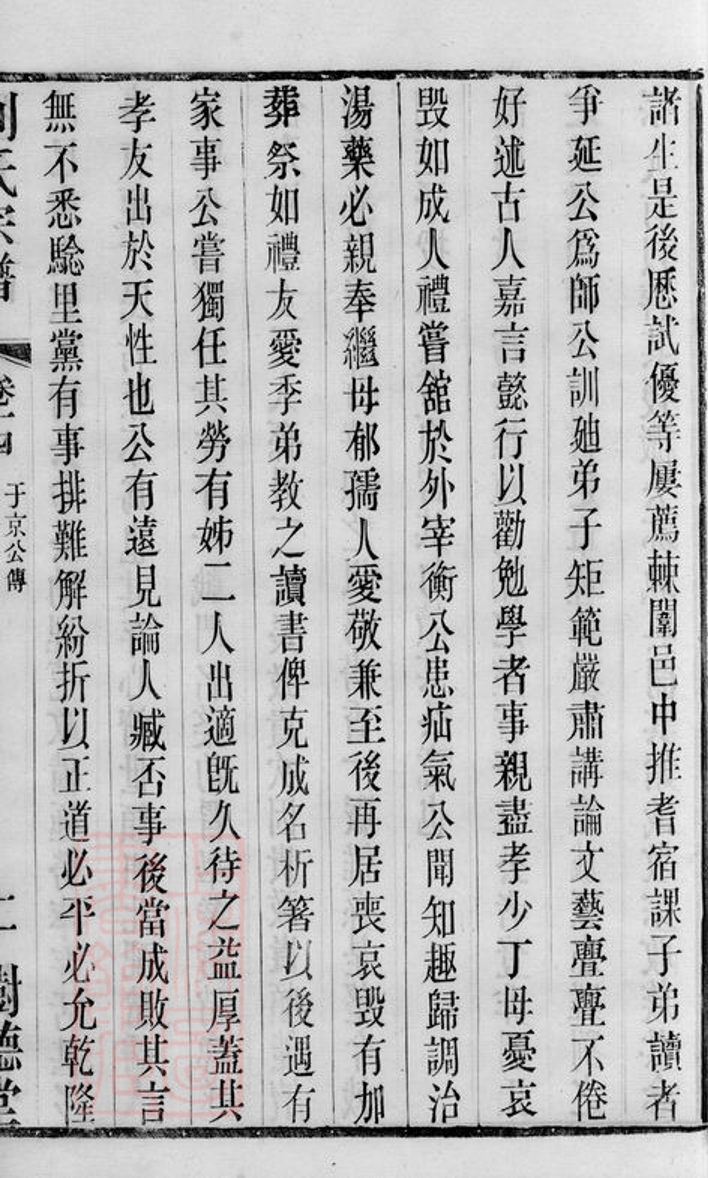 諸生是後歷試優等屢薦棘闈邑中推耆宿課子弟讀者
爭延公爲師公訓廸弟子矩範嚴肅講論文藝亹亹不倦
好述古人嘉言懿行以勸勉學者事親盡孝少丁母憂哀
毀如成人禮嘗舘於外宰衡公患疝氣公聞知趣歸調治
湯藥必親奉繼母郁孺人愛敬兼至後再居喪哀毀有加
葬祭如禮友愛季弟教之讀書俾克成名析箸以後遇有
家事公嘗獨任其勞有姊二人出適旣久待之益厚蓋其
孝友出於天性也公有遠見論人臧否事後當成敗其言
無不悉驗里黨有事排難解紛折以正道必平必允乾隆
氏宗譜 卷十四 于京公傳 二 樹德堂